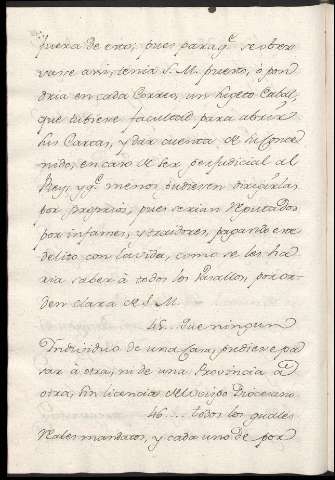 fuera de esto, pues para q.e se obser
vase assi, tenia S. M. puesto, ô pon
dria en cada Correo, un sugeto Cabal,
que tubiese facultad para abrir
las Cartas, y dar cuenta de lo Conte
nido, en caso de ser perjudicial al
Rey, y q.e menos pudiesen dirigirlas
por proprios, pues serian reputados
por infames, y traidores, pagando este
delito con la vida, como se les ha
ria saber â todos los Vasallos, por or
den clara de S. M.
45... Que ningun
Individuo de una Casa, pudiese pa
sar â otra, ni de una Provincia â
otra, sin licencia del Obispo Diocesano.
46.... Todos los quales
Reales mandatos, y cada uno de por